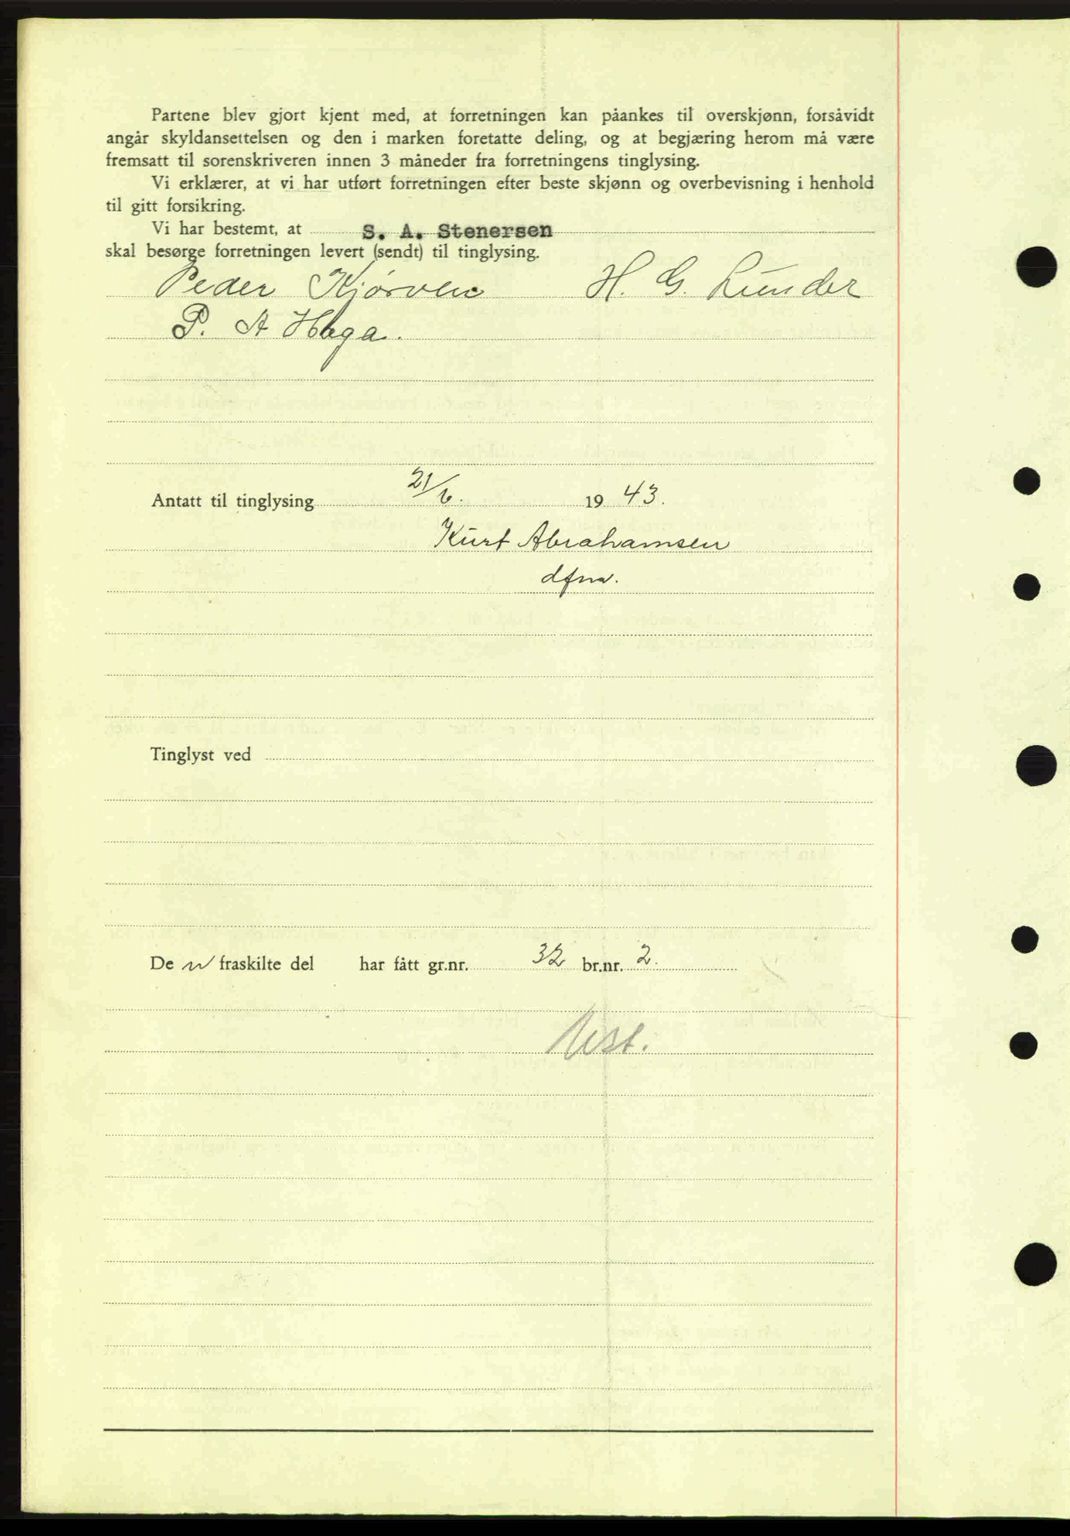 Partene blev gjort kjent med, at forretningen kan påankes til overskjønn, forsåvidt
angår skyldansettelsen og den i marken foretatte deling, og at begjæring herom må være
fremsatt til sorenskriveren innen 3 måneder fra forretningens tinglysing.
Vi erklærer, at vi har utført forretningen efter beste skjønn og overbevisning i henhold
til gitt forsikring.
Vi har bestemt, at S. A. Stenersen
skal besørge forretningen levert (sendt) til tinglysing.
Peder Kjørven H. G. Lunder
P. A Haga.
Antatt til tinglysing 21/6. 19 43.
Kurt Abrahamsen
dfm.
Tinglyst ved
De n fraskilte del har fått gr.nr. 32 br.nr. 2.